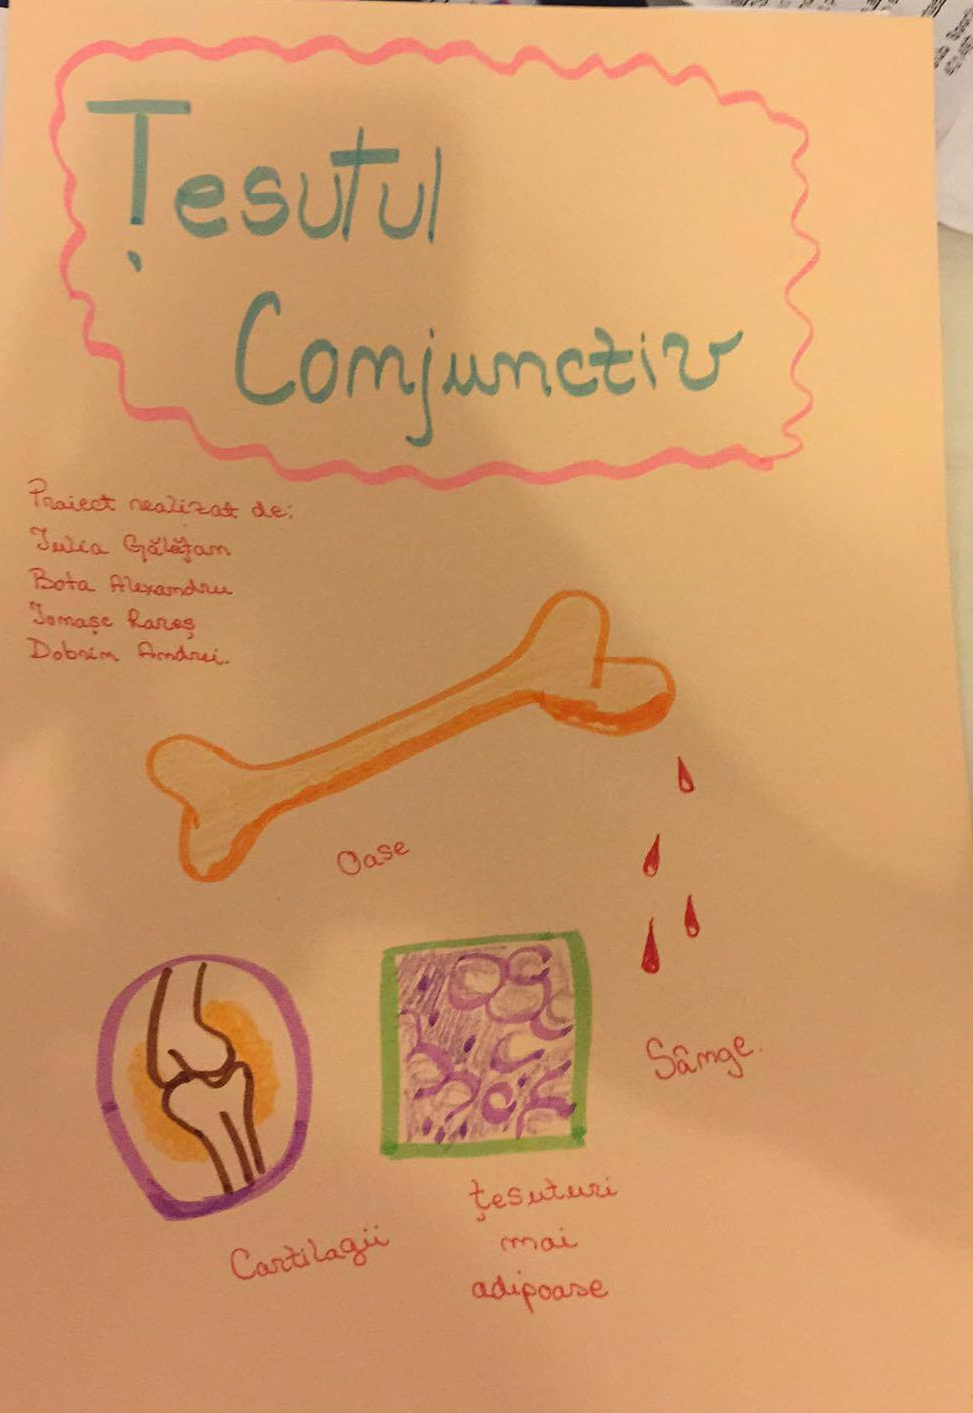 Țesutul
Conjunctiv
Proiect realizat de:
Iulia Gălățan
Bota Alexandru
Tomașc Rareș
Dobrin Andrei.
Oase
Sânge.
Cartilagii
țesuturi
mai
adipoase